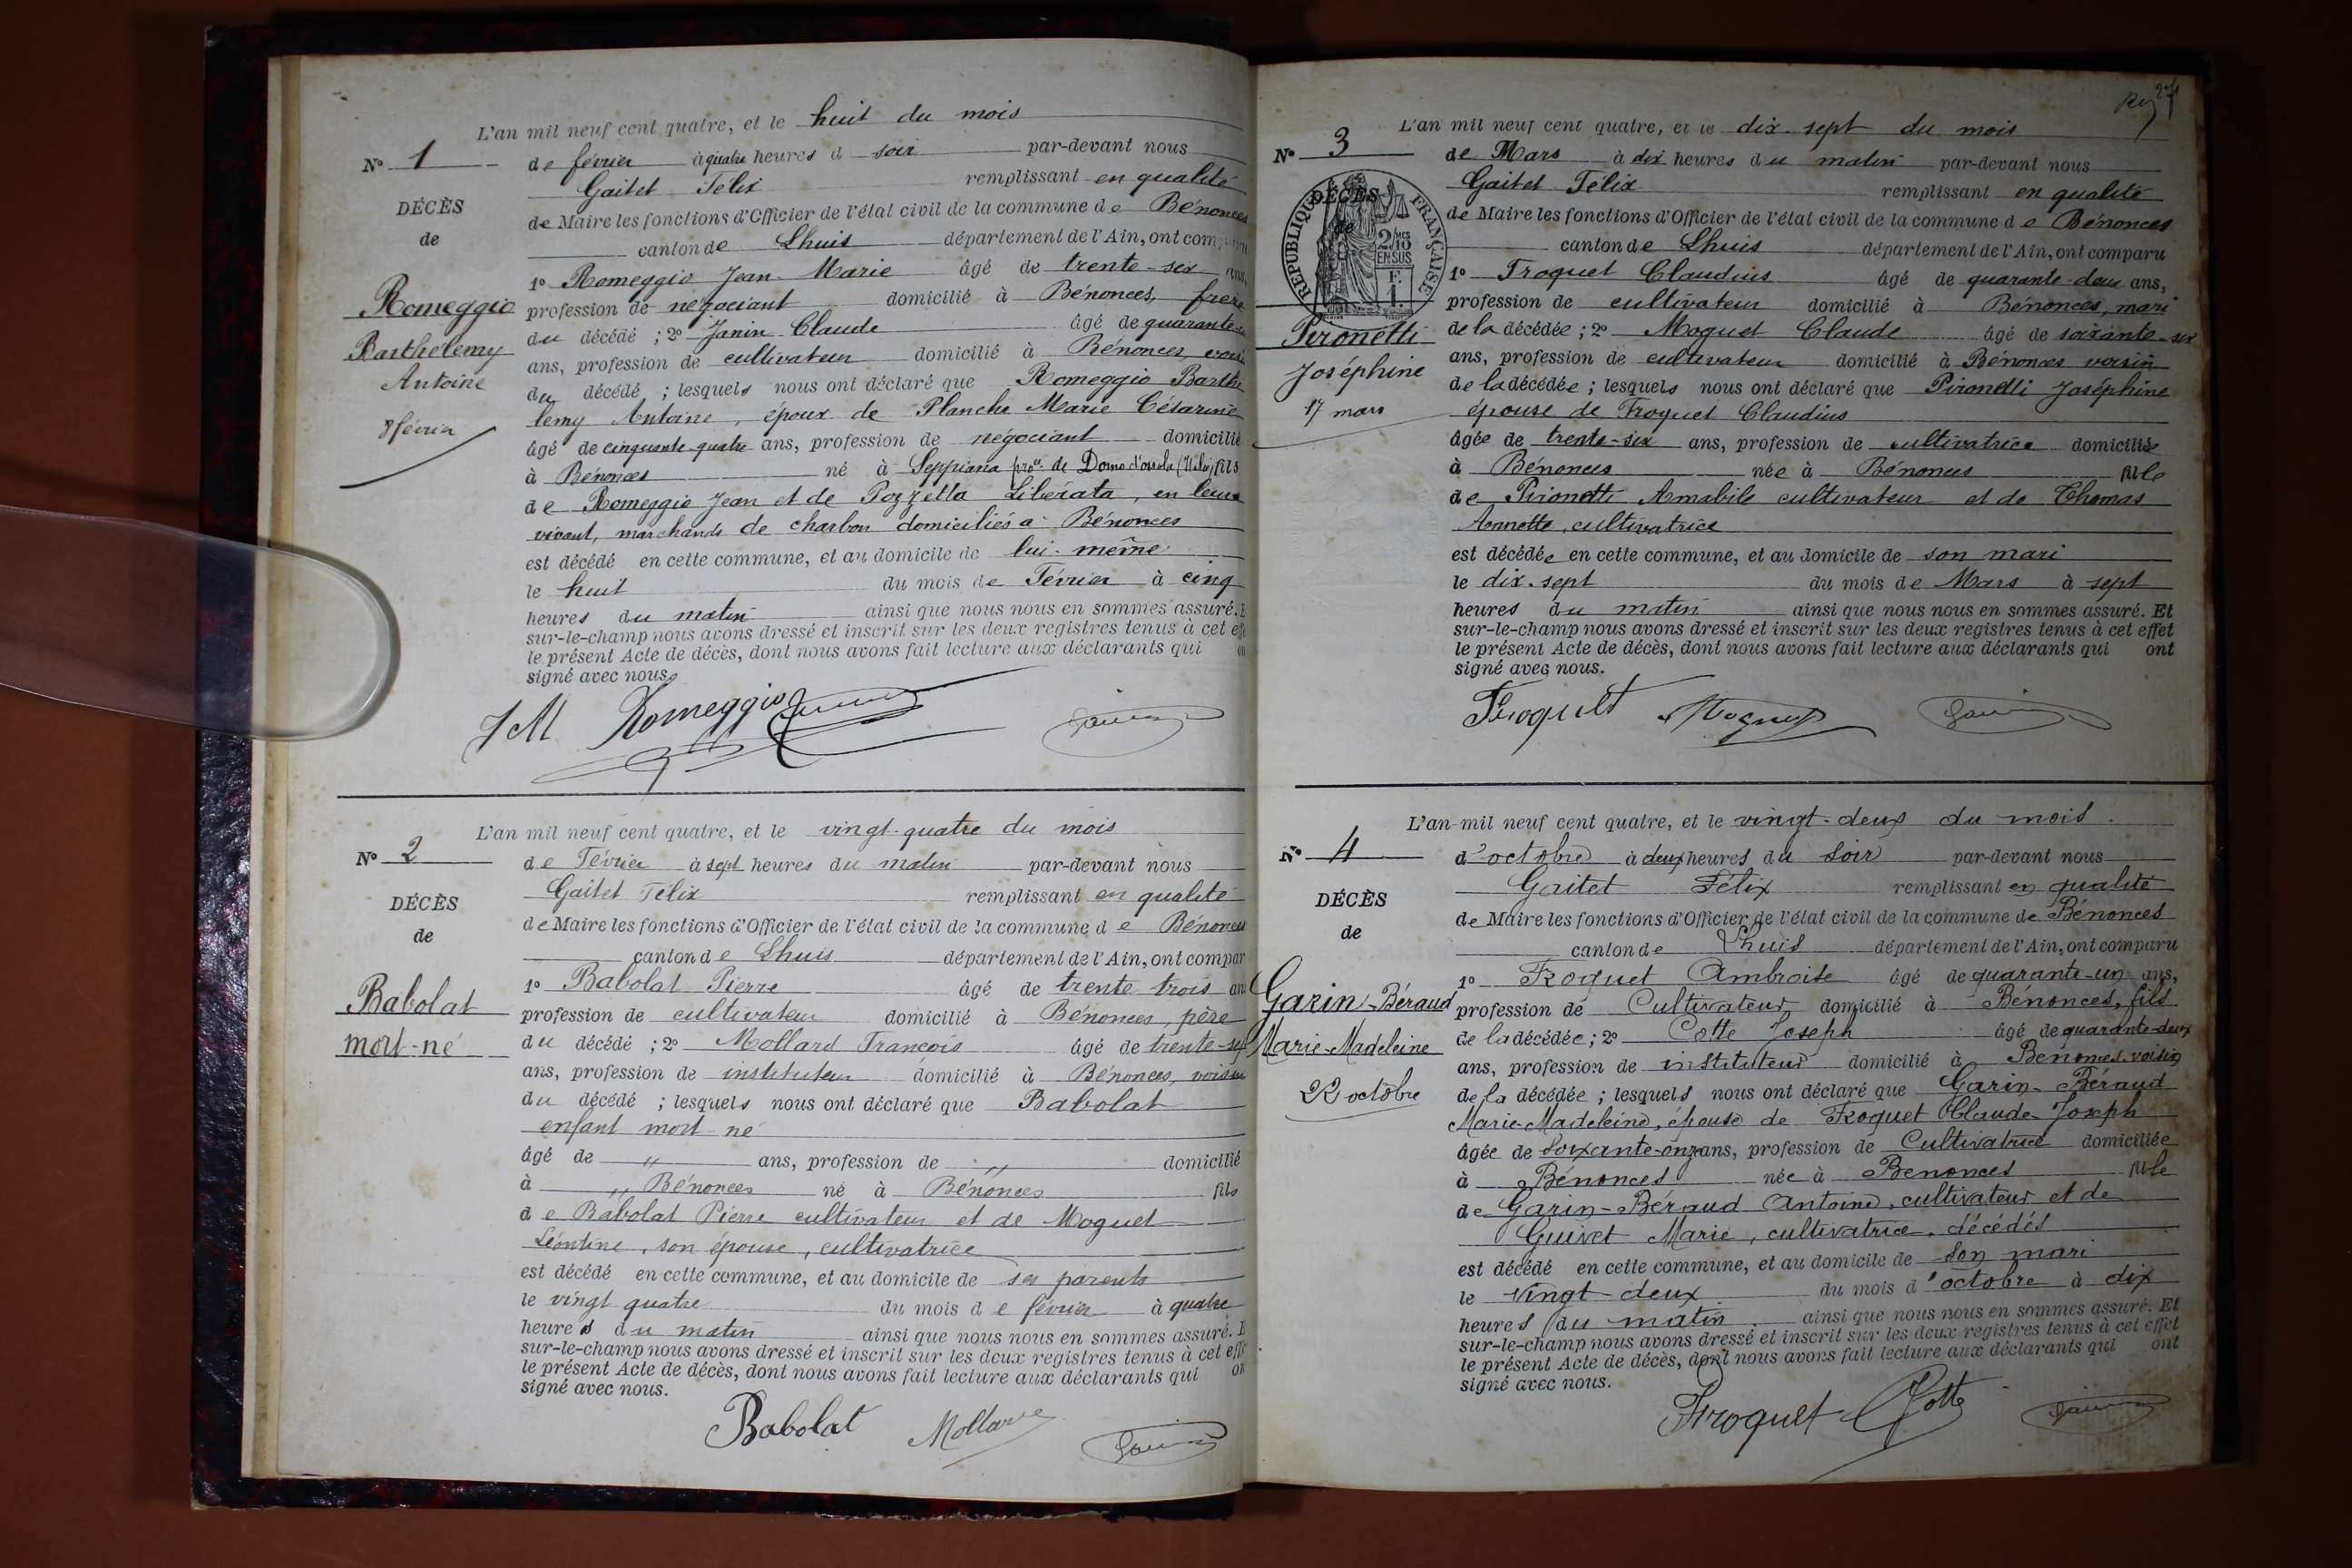 L'an mil neuf cent quatre, et le huit du mois
N° 1
de février à quatre heures d soir par-devant nous
Gaitet Félix remplissant en qualité
DÉCÈS
de Maire les fonctions d'Officier de l'état civil de la commune de Bénonces
de
canton de Lhuis département de l'Ain, ont
1° Romeggio Jean-Marie âgé de trente-six ans,
Romeggio
profession de négociant domicilié à Bénonces, frère
du décédé ; 2° Janin Claude âgé de quarante
Barthélemy
ans, profession de cultivateur domicilié à Bénonces,
Antoine
du décédé ; lesquels nous ont déclaré que Romeggio Barthé
lemy Antoine, époux de Planche Marie Césarine
8 février
âgé de cinquante-quatre ans, profession de négociant domicilié
à Bénonces né à Seppiana de Domo d'ossola (Italie) fils
de Romeggio Jean et de Pozzetta Liberata, en leur
vivant, marchands de charbon domiciliés à Bénonces
est décédé en cette commune, et au domicile de lui-même
le huit du mois de Février à cinq
heures du matin ainsi que nous nous en sommes assuré.
sur-le-champ nous avons dressé et inscrit sur les deux registres tenus à cet
le présent Acte de décès, dont nous avons fait lecture aux déclarants qui
signé avec nous.
JM Romeggio
L'an mil neuf cent quatre, et le vingt-quatre du mois
N° 2
de Février à sept heures du matin par-devant nous
Gaitet Félix remplissant en qualité
DÉCÈS
de Maire les fonctions d'Officier de l'état civil de la commune de Bénonces
de
canton de Lhuis département de l'Ain, ont compar
1° Babolat Pierre âgé de trente trois an
Babolat
profession de cultivateur domicilié à Bénonces, père
mort-né
du décédé ; 2° Mollard François âgé de trente-sep
ans, profession de instituteur domicilié à Bénonces, voisin
du décédé ; lesquels nous ont déclaré que Babolat
enfant mort-né
âgé de " ans, profession de " domicilié
à " Bénonces né à Bénonces fils
de Babolat Pierre cultivateur et de Moguet
Léontine, son épouse, cultivatrice
est décédé en cette commune, et au domicile de ses parents
le vingt quatre du mois de février à quatre
heures du matin ainsi que nous nous en sommes assuré.
sur-le-champ nous avons dressé et inscrit sur les deux registres tenus à cet
le présent Acte de décès, dont nous avons fait lecture aux déclarants qui
signé avec nous.
Babolat Mollard
L'an mil neuf cent quatre, et le dix-sept du mois
N° 3
de Mars à dix heures du matin par-devant nous
Gaitet Félix remplissant en qualité
DÉCÈS
de Maire les fonctions d'Officier de l'état civil de la commune de Bénonces
de
RÉPUBLIQUE FRANÇAISE
2/10 EN SUS
F. 1.
canton de Lhuis département de l'Ain, ont comparu
1° Froquet Claudius âgé de quarante-deux ans,
profession de cultivateur domicilié à Bénonces, mari
Pironetti
de la décédée ; 2° Moguet Claude âgé de soixante-six
ans, profession de cultivateur domicilié à Bénonces voisin
Joséphine
de la décédée ; lesquels nous ont déclaré que Pironetti Joséphine
17 mars
épouse de Froquet Claudius
âgée de trente-six ans, profession de cultivatrice domiciliée
à Bénonces née à Bénonces fille
de Pironetti Amabile cultivateur et de Thomas
Annette, cultivatrice
est décédée en cette commune, et au domicile de son mari
le dix-sept du mois de Mars à sept
heures du matin ainsi que nous nous en sommes assuré. Et
sur-le-champ nous avons dressé et inscrit sur les deux registres tenus à cet effet
le présent Acte de décès, dont nous avons fait lecture aux déclarants qui ont
signé avec nous.
Froquet Moguet
L'an mil neuf cent quatre, et le vingt-deux du mois
N° 4
d'octobre à deux heures du soir par-devant nous
Gaitet Félix remplissant en qualité
DÉCÈS
de Maire les fonctions d'Officier de l'état civil de la commune de Bénonces
de
canton de Lhuis département de l'Ain, ont comparu
1° Froquet Ambroise âgé de quarante-un ans,
Garin-Béraud
profession de Cultivateur domicilié à Bénonces, fils
de la décédée ; 2° Cotte Joseph âgé de quarante-deux
Marie-Madeleine
ans, profession de instituteur domicilié à Bénonces, voisin
22 octobre
de la décédée ; lesquels nous ont déclaré que Garin-Béraud
Marie-Madeleine, épouse de Froquet Claude-Joseph
âgée de soixante-onze ans, profession de Cultivatrice domiciliée
à Bénonces née à Benonces fille
de Garin-Béraud Antoine, cultivateur et de
Guivet Marie, cultivatrice, décédés
est décédé en cette commune, et au domicile de son mari
le vingt-deux du mois d'octobre à dix
heures du matin ainsi que nous nous en sommes assuré. Et
sur-le-champ nous avons dressé et inscrit sur les deux registres tenus à cet effet
le présent Acte de décès, dont nous avons fait lecture aux déclarants qui ont
signé avec nous.
Froquet Cotte